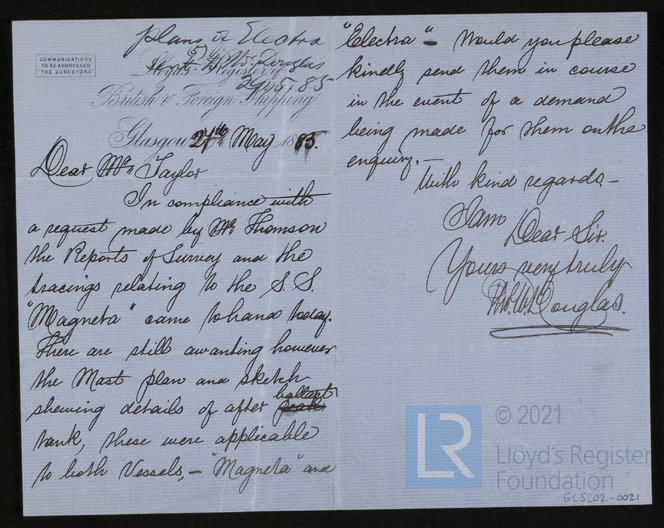 COMMUNICATIONS
TO BE ADDRESSED
THE SURVEYORS
plans of Electra
(5)
sent W. Douglas
29.5.85
Lloyd's Register of
British & Foreign Shipping
Glasgow 27th May 1885.
Dear Mr Taylor
In compliance with
a request made by Mr Thomson
the Reports of Survey and the
tracings relating to the S.S.
"Magneta" came to hand today.
There are still awanting however
the Mast plan and sketch
shewing details of after ballast
tank, these were applicable
to both Vessels, - "Magneta" and
"Electra" - Would you please
kindly send them in course
in the event of a demand
being made for them on the
enquiry. -
With kind regards -
I am Dear Sir.
Yours very truly
W. Douglas.
LR
© 2021
Lloyd's Register
Foundation
GLS202-0021